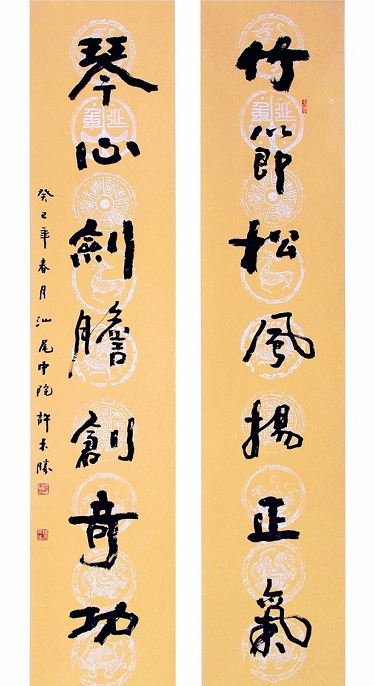 竹節松風揚正氣
琴心劍膽創奇功
癸巳年春月汕尾中院許勝